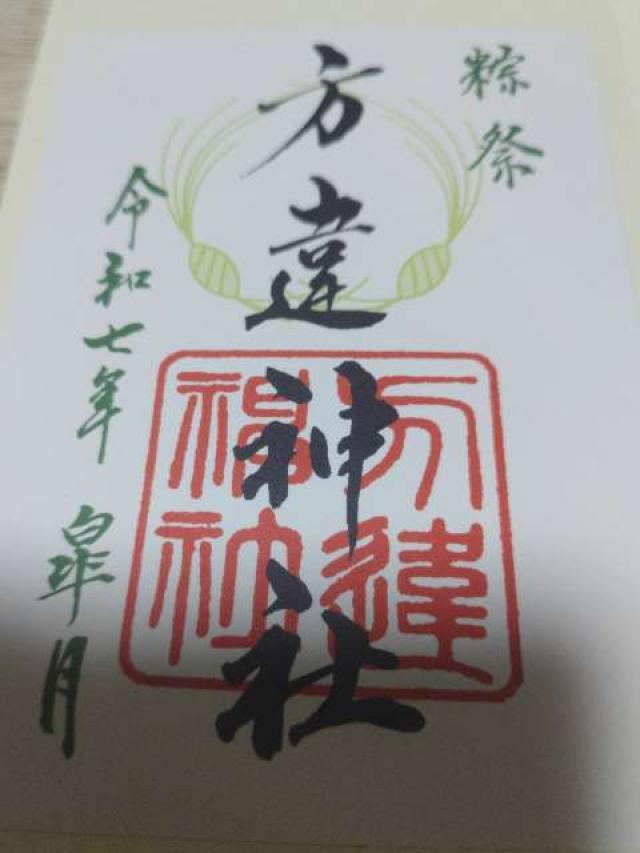 粽祭
方違神社
令和七年 皐月
方違